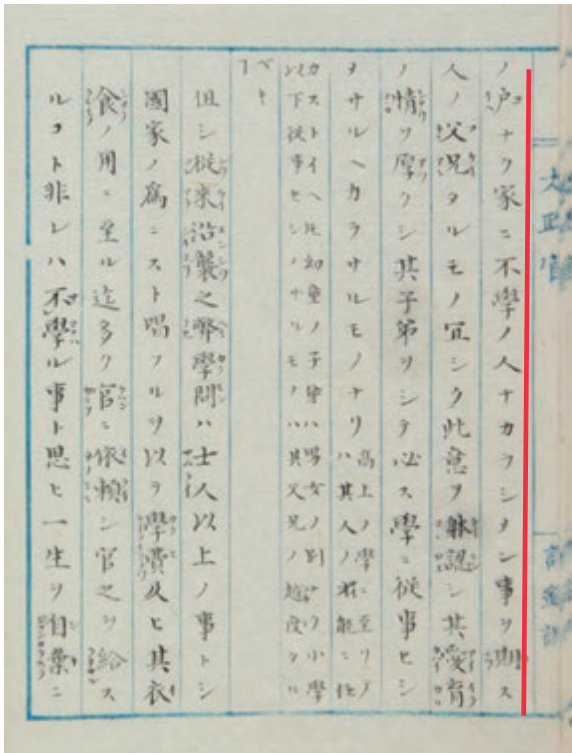 ノ戸ナク家ニ不學ノ人ナカラシメン事ヲ期ス
人ノ父兄タルモノ宜シク此意ヲ躰認シ其愛育
ノ情ヲ厚クシ其子弟ヲシテ必ス學ニ從事セシ
メサルヘカラサルモノナリ高上ノ學ニ至リテハ其人ノ材能ニ任
カストイヘ𪜈幼童ノ子弟ハ男女ノ別ナク小學
以下從事セシノサルモノハ其父兄ノ越度タル
ベキ
但シ從來沿襲之弊學問ハ士人以上ノ事トシ
國家ノ爲ニスト唱フルヲ以テ學費及ヒ其衣
食ノ用ニ至ル迄多ク官ニ依頼シ官之ヲ給ス
ルコト非レハ不學ル事ト思ヒ一生ヲ自棄ニ
太政官